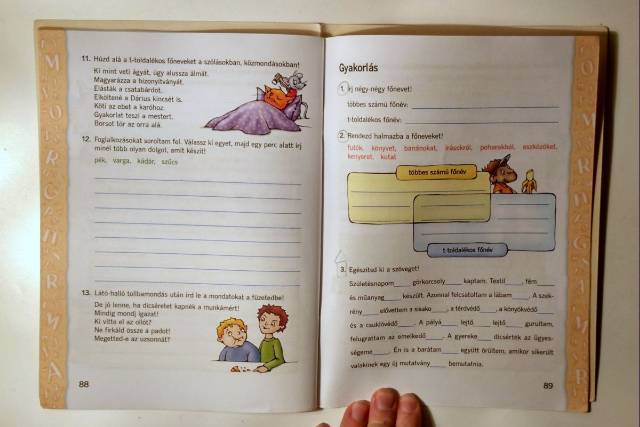 11. Húzd alá a t-toldalékos főneveket a szólásokban, közmondásokban!
Ki mint veti ágyát, úgy alussza álmát.
Magyarázza a bizonyítványát.
Elásták a csatabárdot.
Elköltené a Dárius kincsét is.
Köti az ebet a karóhoz.
Gyakorlat teszi a mestert.
Borsot tör az orra alá.
12. Foglalkozásokat soroltam fel. Válassz ki egyet, majd egy perc alatt írj
minél több olyan dolgot, amit készít!
pék, varga, kádár, szűcs
13. Látó-halló tollbamondás után írd le a mondatokat a füzetedbe!
De jó lenne, ha dicséretet kapnék a munkámért!
Mindig mondj igazat!
Ki vitte el az ollót?
Ne firkáld össze a padot!
Megetted-e az uzsonnát?
88
Gyakorlás
1. Írj négy-négy főnevet!
többes számú főnév:
t-toldalékos főnév:
2. Rendezd halmazba a főneveket!
futók, könyvet, banánokat, írásokról, poharakból, eszközöket,
kenyeret, kutat
többes számú főnév
t-toldalékos főnév
3. Egészítsd ki a szöveget!
Születésnapom____ görkorcsoly____ kaptam. Textil____, fém____
és műanyag____ készült. Azonnal felcsatoltam a lábam____. A szek-
rény____ elővettem a sisako____, a térdvédő____, a könyökvédő____
és a csuklóvédő____. A pályá____ lejtő____ lejtő____ gurultam,
felugrattam az emelkedő____. A gyereke____ dicsérték az ügyes-
ségeme____. Én is a barátam____ együtt örültem, amikor sikerült
valakinek egy új mutatvány____ bemutatnia.
89